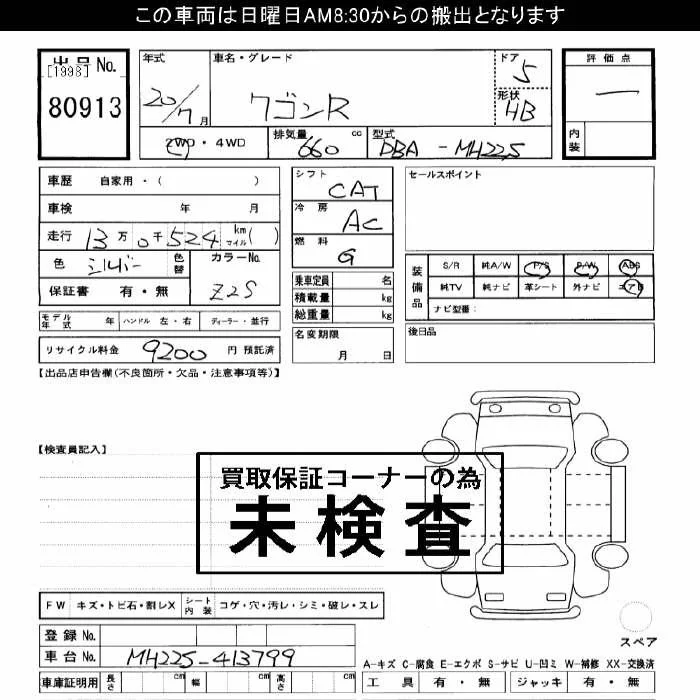 この車両は日曜日AM8:30からの搬出となります
出品No.
[1998]
80913
年式
20/7月
車名・グレード
ワゴンR
ドア
5
形状
HB
評価点
―
内装
2WD・4WD
排気量 660 cc
型式 DBA-MH22S
車歴 自家用・( )
車検 年 月
走行 13万0千524 km マイル( )
色 シルバー 色替
カラーNo. Z2S
保証書 有・無
モデル年式 年 ハンドル 左・右 ディーラー・並行
リサイクル料金 9200 円 預託済
シフト CAT
冷房 AC
燃料 G
乗車定員 名
積載量 kg
総重量 kg
名変期限
月 日
セールスポイント
装備品
S/R 純A/W P/S P/W ABS
純TV 純ナビ 革シート 外ナビ エアB
ナビ型番:
後日品
【出品店申告欄(不良箇所・欠品・注意事項等)】
【検査員記入】
買取保証コーナーの為
未検査
FW キズ・トビ石・割レX シート内装 コゲ・穴・汚レ・シミ・破レ・スレ
登録No.
車台No. MH22S-413799
車庫証明用 長さ cm 幅 cm 高さ cm
スペア
A-キズ C-腐食 E-エクボ S-サビ U-凹ミ W-補修 XX-交換済
工具 有・無 ジャッキ 有・無